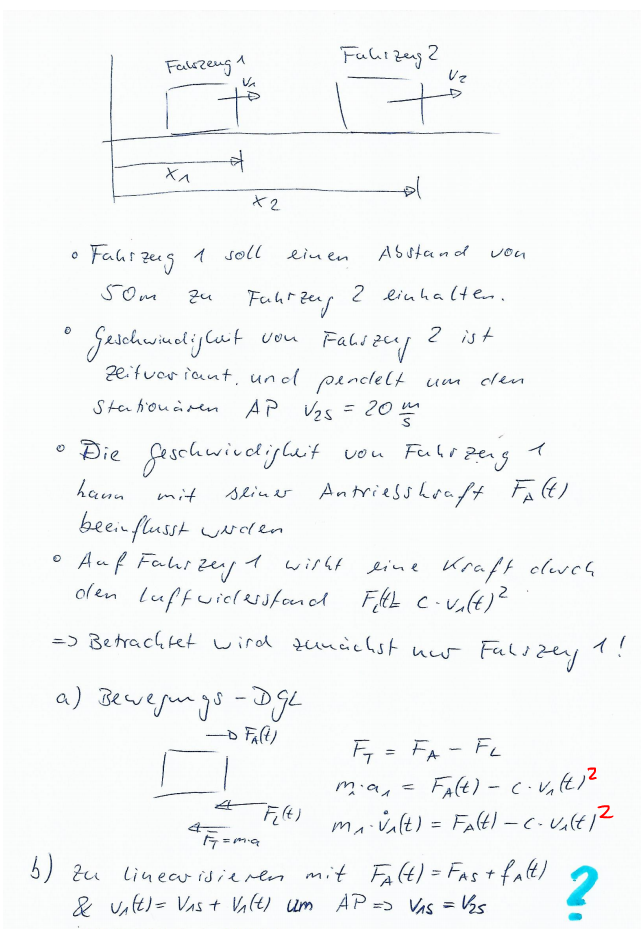 Fahrzeug 1
Fahrzeug 2
v₁
v₂
x₁
x₂
∘ Fahrzeug 1 soll einen Abstand von
50m zu Fahrzeug 2 einhalten.
∘ Geschwindigkeit von Fahrzeug 2 ist
zeitvariant, und pendelt um den
stationären AP V₂s = 20 m/s
∘ Die Geschwindigkeit von Fahrzeug 1
kann mit seiner Antriebskraft F_A(t)
beeinflusst werden
∘ Auf Fahrzeug 1 wirkt eine Kraft durch
den Luftwiderstand F_L(t) = c·v₁(t)²
=> Betrachtet wird zunächst nur Fahrzeug 1!
a) Bewegungs-DGL
F_A(t)
F_L(t)
F_T = m·a
F_T = F_A - F_L
m₁·a₁ = F_A(t) - c·v₁(t)²
m₁·v̇₁(t) = F_A(t) - c·v₁(t)²
b) zu linearisieren mit F_A(t) = F_AS + f_A(t)
& v₁(t) = V₁s + v₁(t) um AP => V₁s = V₂s
?